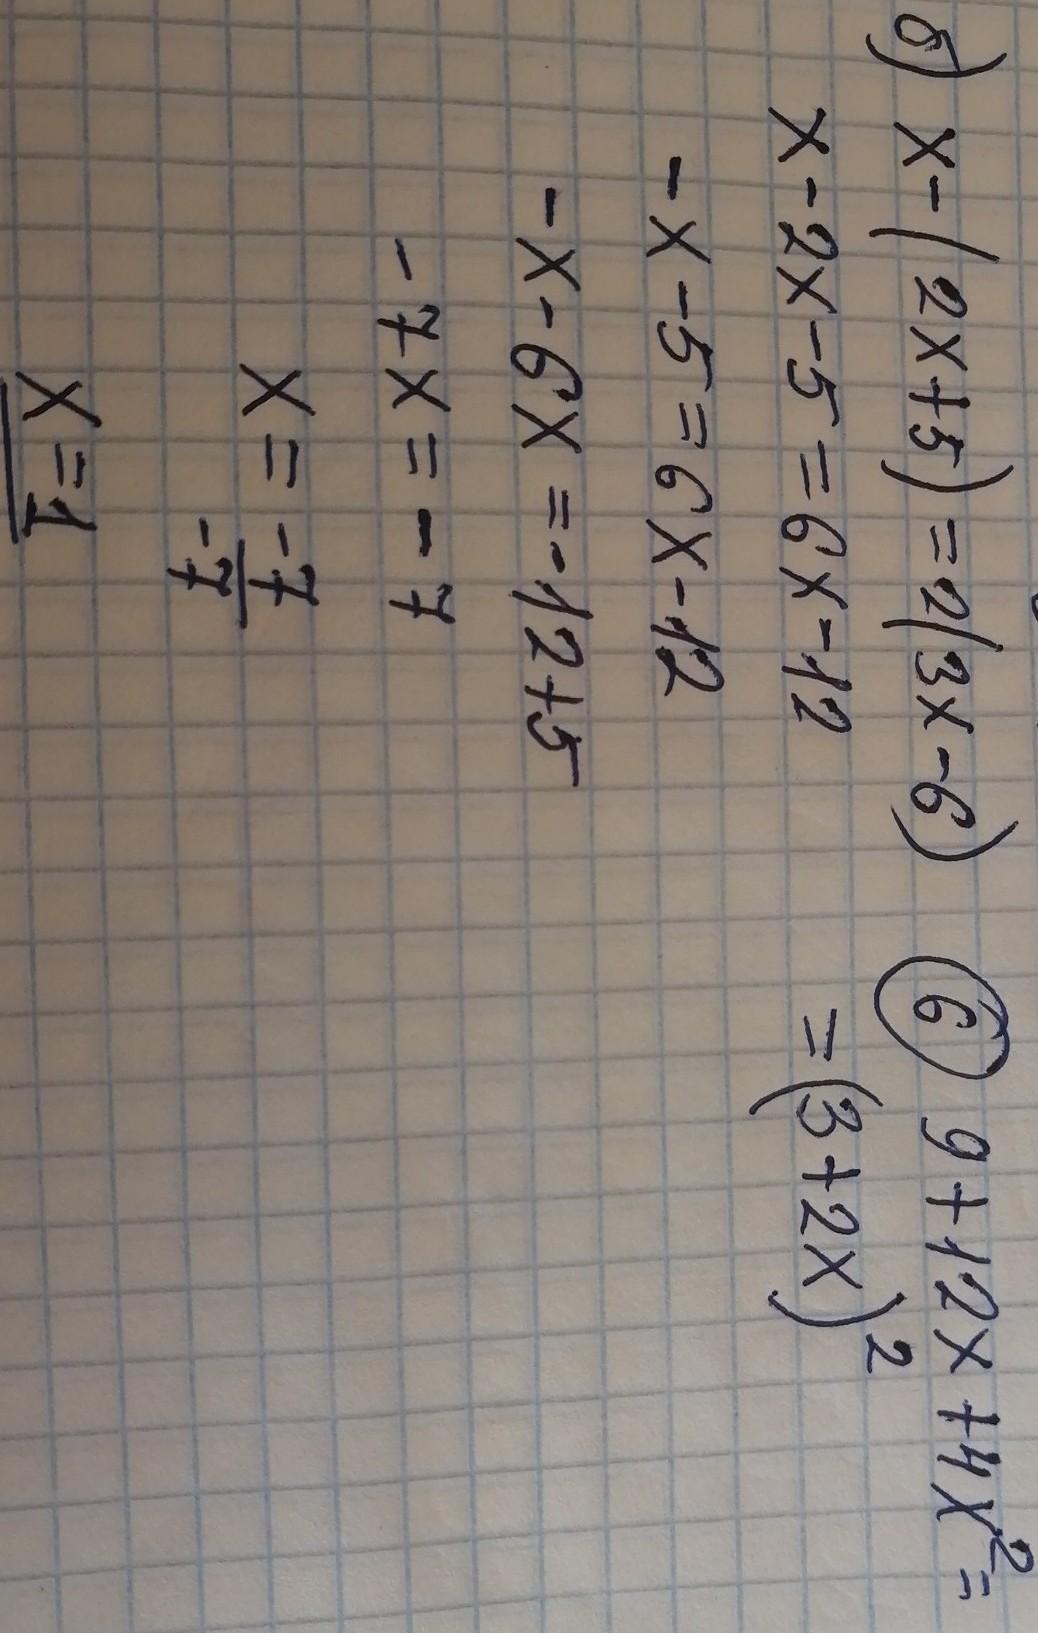 б) x-(2x+5)=2(3x-6)
x-2x-5=6x-12
-x-5=6x-12
-x-6x=-12+5
-7x=-7
x=-7/-7
x=1
6 9+12x+4x²=
=(3+2x)²